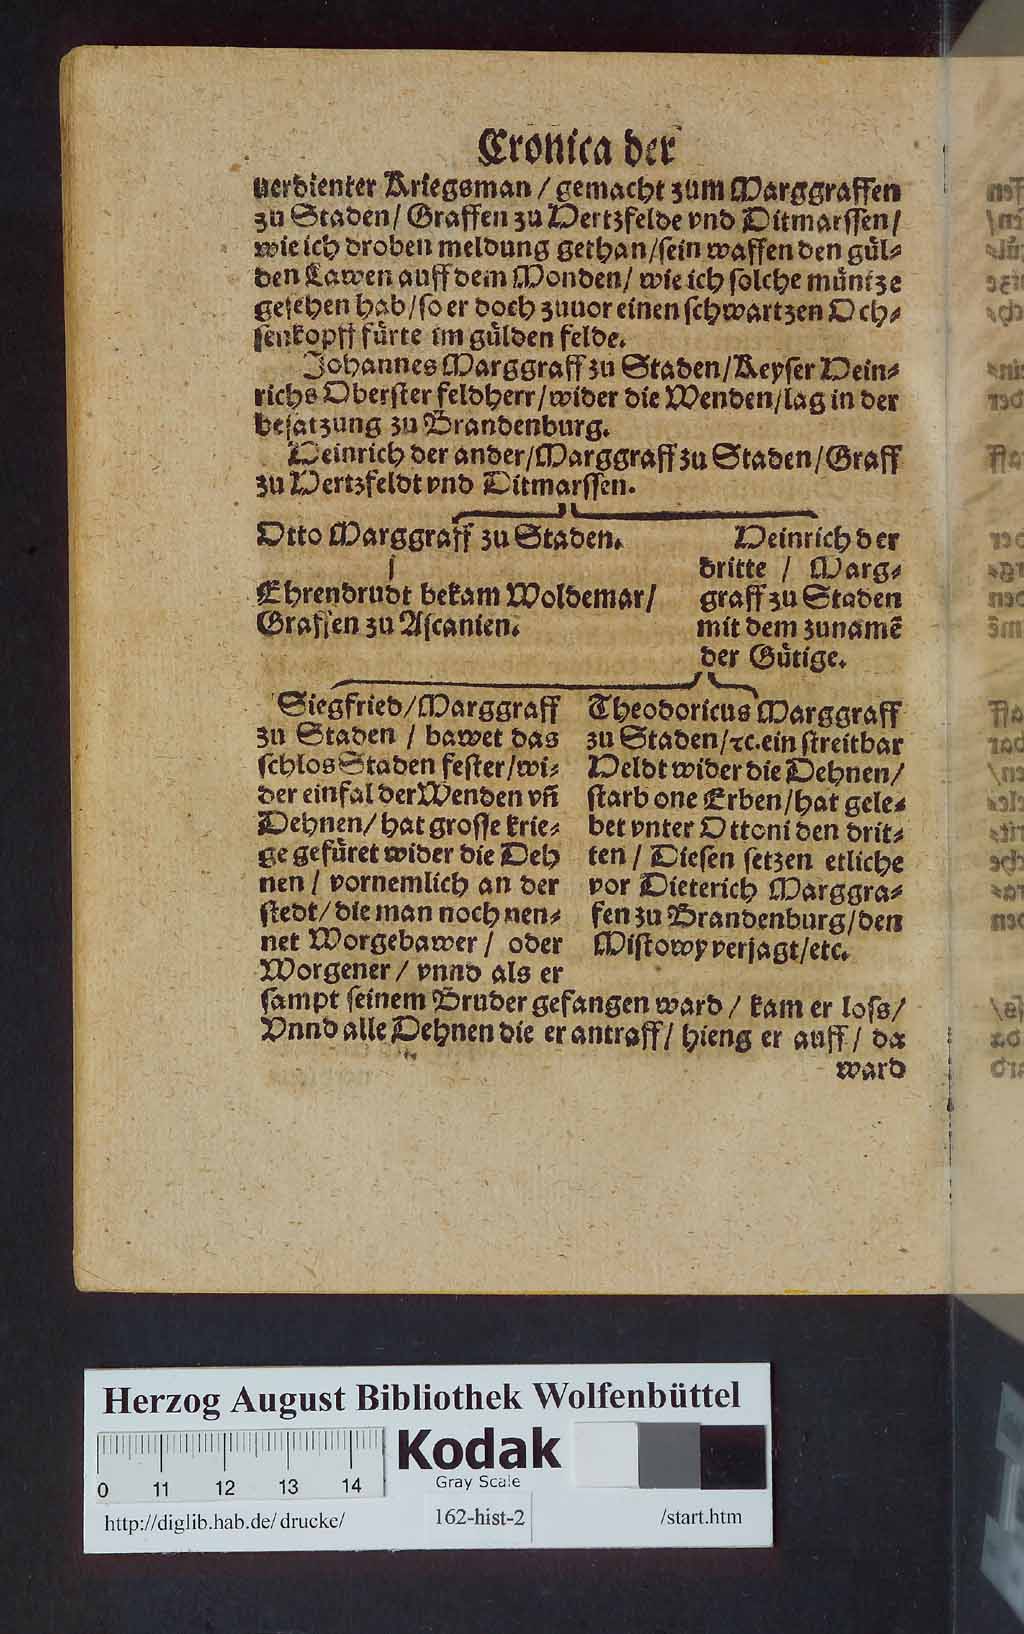 Cronica der
uerdienter Kriegsman / gemacht zum Marggraffen
zu Staden/ Graffen zu Hertzfelde vnd Ditmarssen/
wie ich droben meldung gethan/sein waffen den gül⸗
den Lawen auff dem Monden/ wie ich solche müntze
gesehen hab/so er doch zuuor einen schwartzen Och⸗
senkopff fürte im gülden felde.
Johannes Marggraff zu Staden/Keyser Hein⸗
richs Oberster feldherr/wider die Wenden/lag in der
besatzung zu Brandenburg.
Heinrich der ander/Marggraff zu Staden/Graff
zu Hertzfeldt vnd Ditmarssen.
Otto Marggraff zu Staden.
Ehrendrudt bekam Woldemar/
Graffen zu Ascanien.
Heinrich der
dritte / Marg⸗
graff zu Staden
mit dem zunamẽ
der Gütige.
Siegfried/Marggraff
zu Staden / bawet das
schlos Staden fester/wi⸗
der einfal der Wenden vñ
Dehnen/ hat grosse krie⸗
ge gefüret wider die Deh
nen / vornemlich an der
stedt/ die man noch nen⸗
net Worgebawer / oder
Worgener / vnnd als er
Theodoricus Marggraff
zu Staden/ꝛc.ein streitbar
Heldt wider die Dehnen/
starb one Erben/hat gele⸗
bet vnter Ottoni den drit⸗
ten / Diesen setzen etliche
vor Dieterich Marggra⸗
fen zu Brandenburg/den
Mistowy verjagt/etc.
sampt seinem Bruder gefangen ward / kam er loss/
Vnnd alle Dehnen die er antraff/ hieng er auff/ da
ward
Herzog August Bibliothek Wolfenbüttel
Kodak
Gray Scale
0 11 12 13 14
http://diglib.hab.de/drucke/ 162-hist-2 /start.htm